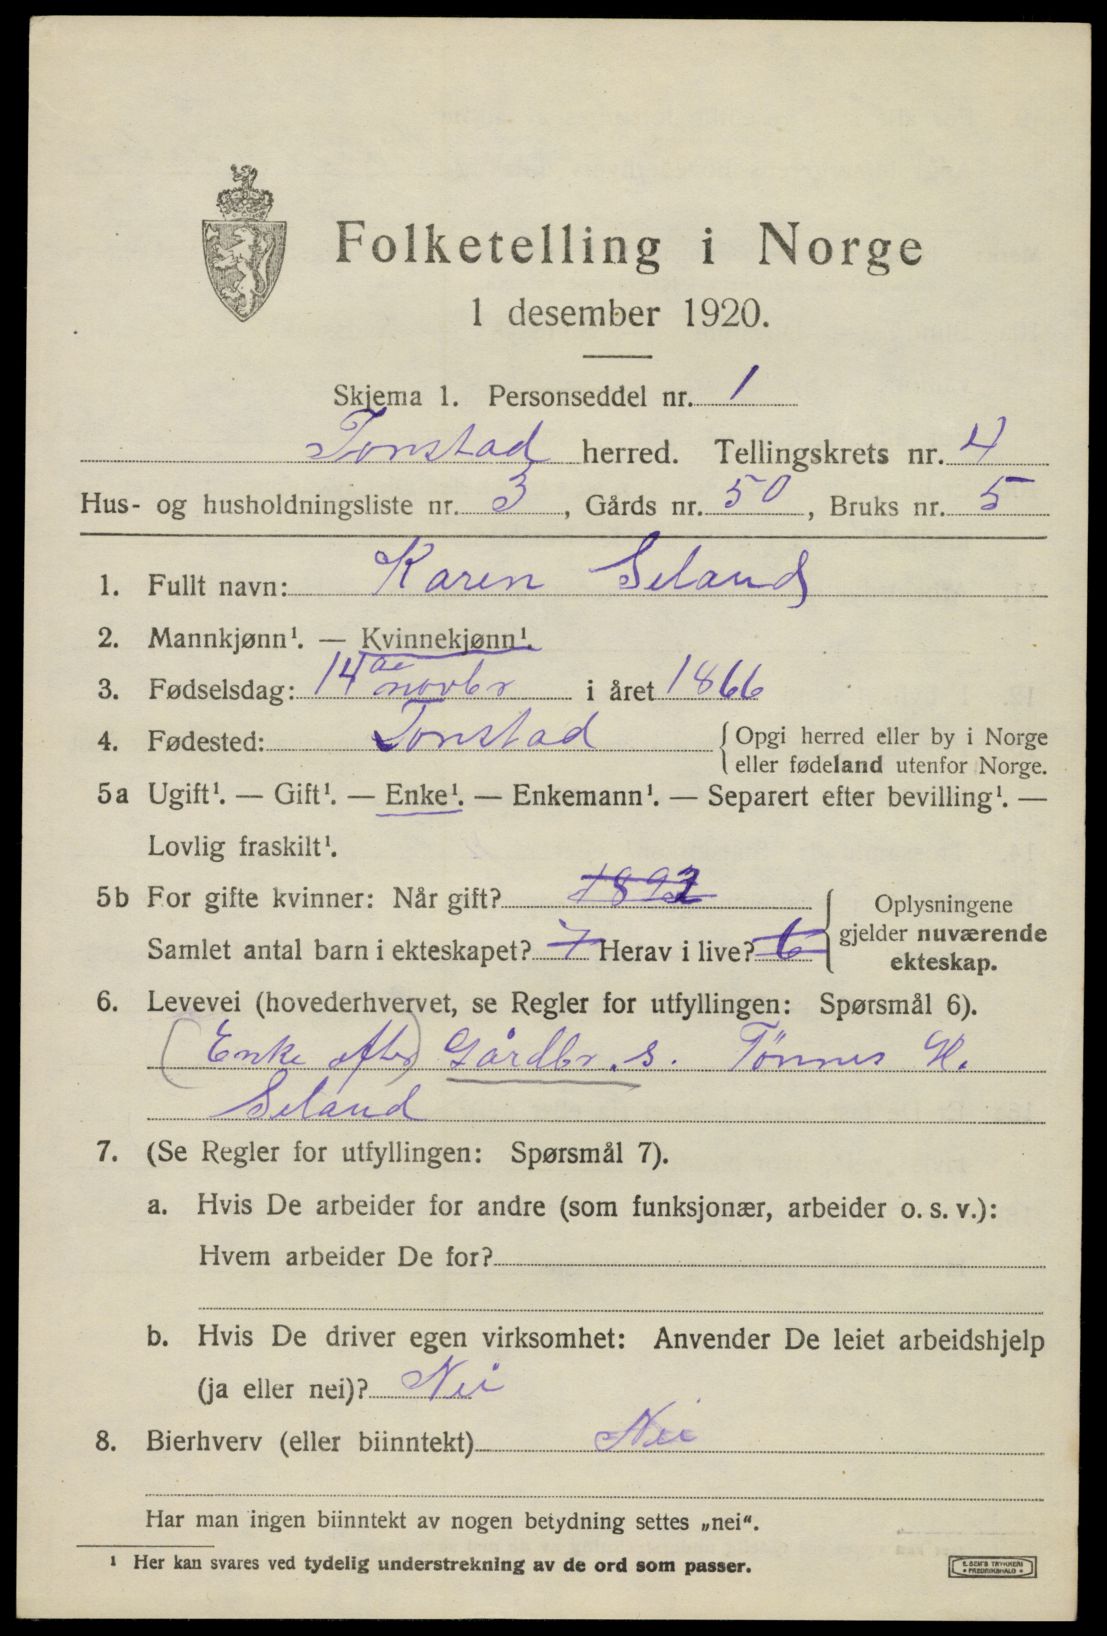 Folketelling i Norge
1 desember 1920.
Skjema 1. Personseddel nr. 1
Tonstad herred. Tellingskrets nr. 4
Hus- og husholdningsliste nr. 3, Gårds nr. 50, Bruks nr. 5
1. Fullt navn: Karen Seland
2. Mannkjønn¹. — Kvinnekjønn¹.
3. Fødselsdag: 14de novbr i året 1866
4. Fødested: Tonstad {Opgi herred eller by i Norge
eller fødeland utenfor Norge.
5a Ugift¹. — Gift¹. — Enke¹. — Enkemann¹. — Separert efter bevilling¹. —
Lovlig fraskilt¹.
5b For gifte kvinner: Når gift? 1892 Oplysningene
Samlet antal barn i ekteskapet? 7 Herav i live? 6 gjelder nuværende
ekteskap.
6. Levevei (hovederhvervet, se Regler for utfyllingen: Spørsmål 6).
(Enke efter) Gårdbr. s. Tønnes H.
Seland
7. (Se Regler for utfyllingen: Spørsmål 7).
a. Hvis De arbeider for andre (som funksjonær, arbeider o. s. v.):
Hvem arbeider De for?
b. Hvis De driver egen virksomhet: Anvender De leiet arbeidshjelp
(ja eller nei)? Nei
8. Bierhverv (eller biinntekt) Nei
Har man ingen biinntekt av nogen betydning settes „nei“.
¹ Her kan svares ved tydelig understrekning av de ord som passer.
E. SEM'S TRYKKERI
• FREDRIKSHALD •